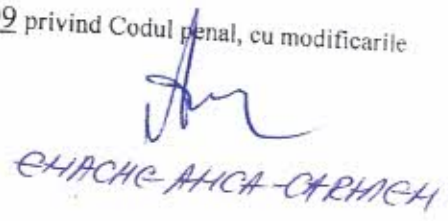 9 privind Codul penal, cu modificarile
ENACHE ANCA-CARMEN